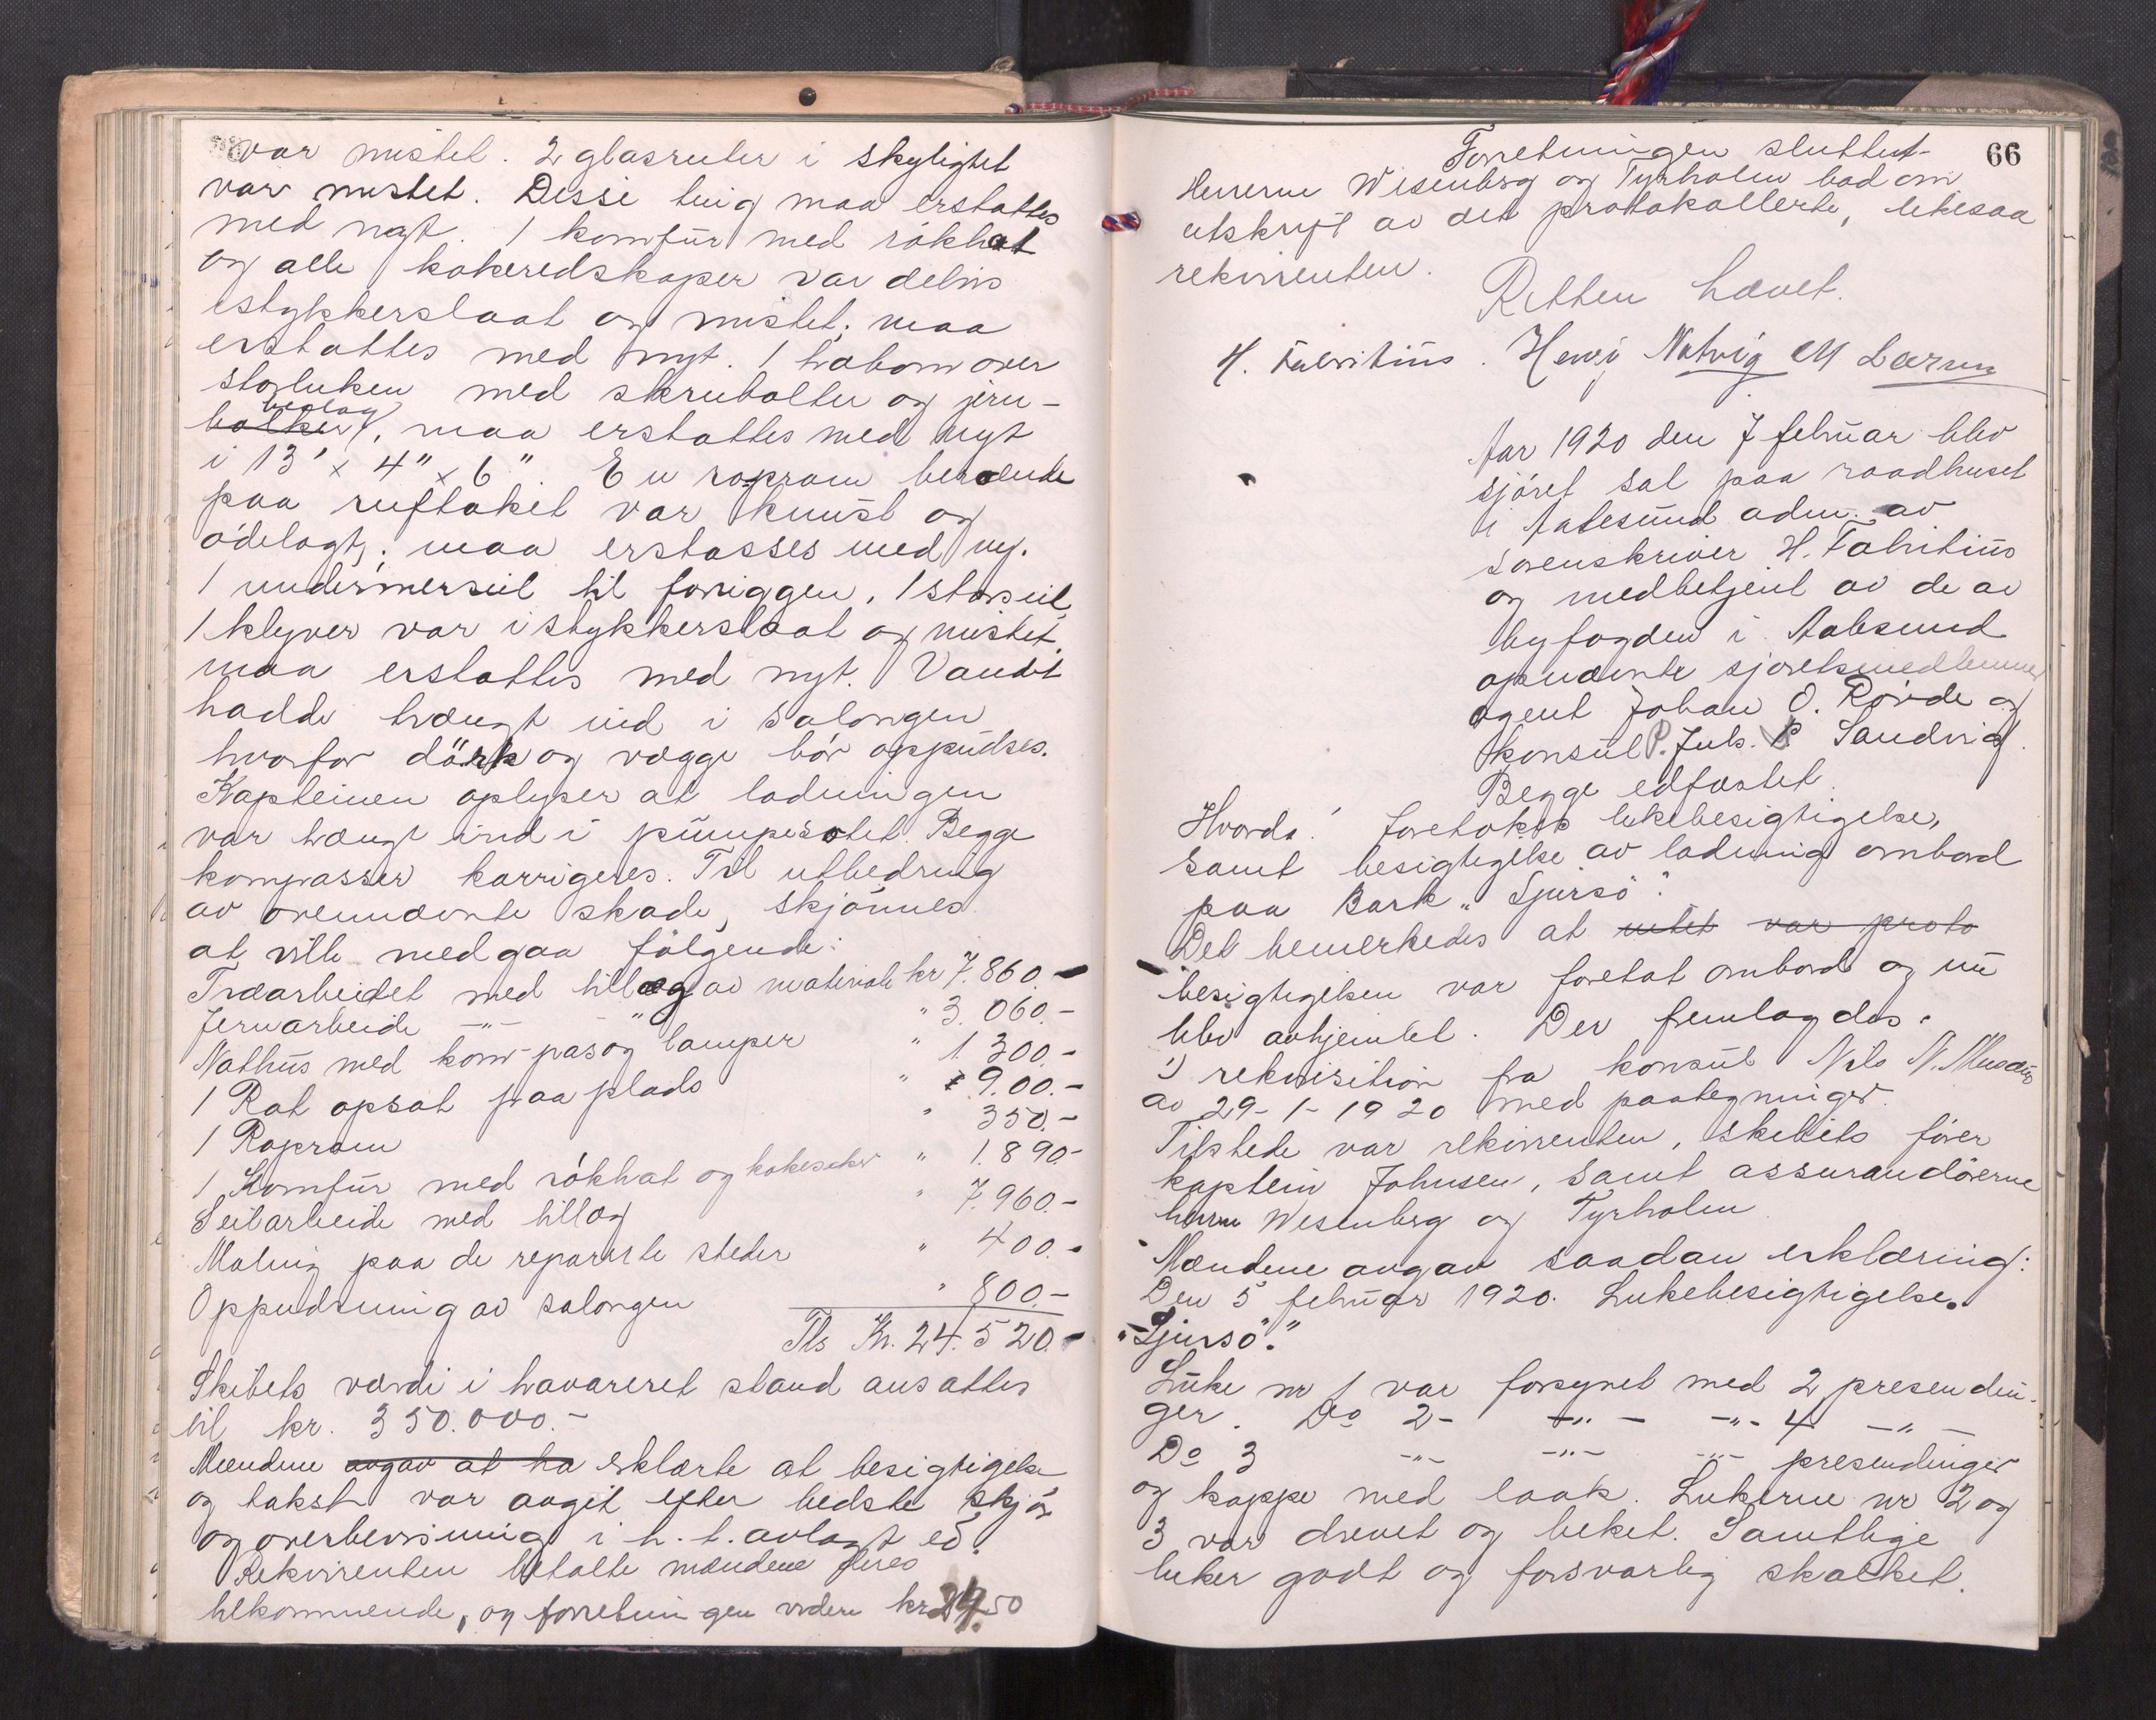 var mistet. 2 glasruter i skylightet
var mistet. Desse ting maa erstattes
med nyt. 1 komfür med rökhat
og alle kokeredskaper var delvis
istykkerslaat og mistet; maa
erstattes med nyt. 1 trabom over
storluken med skrubolter og jern-
beslag
bolker, maa erstattes med nyt
i 13' x 4" x 6" En ropram beroende
paa ruftaket var knust og
ödelagt; maa erstasses med ny.
1 undermerseil til foriggen, 1 storseil,
1 klyver var istykkerslaat og mistet.
maa erstattes med nyt. Vandet
hadde trængt ind i salongen
hvorfor dörk og vægge bör oppudses.
Kapteinen oplyser at ladningen
var trængt ind i pumpesotet. Begge
kompasser korrigeres. Til utbedring
av ovennævnte skade, skjönnes
at ville medgaa fölgende:
Træarbeidet med tillæg av materiale kr 7.860.-
Jernarbeide -"- -"- " 3.060.-
Nathus med kom-pas og lamper " 1.300.-
1 Rat opsat paa plads " 900.-
1 Ropram " 350.-
1 Komfür med rökhat og kokesaker " 1.890.-
Seilarbeide med tillæg " 7.960.-
Maling paa de reparerte steder " 400.-
Oppudsning av salongen " 800.-
Tls Kr. 24.520.-
Skibets værdi i havareret stand ansattes
til kr. 350.000.-
Mændene avgav at ha erklærte at besigtigelse
og takst var avgit efter bedste skjön
og overbevisning i h. t. avlagt ed.
Rekvirenten betalte mændene deres
tilkommende, og forretningen videre kr 24.50
66
Forretningen sluttet.
Herrerne Wisenberg og Tyrholm bad om
utskrift av det protokollerte, likesaa
rekvirenten.
Retten hævet.
H. Fabritius. Henrij Natvig M Lærum
Aar 1920 den 7 februar blev
sjöret sat paa raadhuset
i Aalesund adm. av
sorenskriver H. Fabritius
og medbetjent av de av
byfogden i Aalesund
opnævnte sjöretsmedlemmer
agent Johan O. Røvde og
konsul P. Juls. P Sandvig.
Begge edfæstet.
Hvorda! foretokes lukebesigtigelse,
samt besigtigelse av ladning ombord
paa Bark „Sjursö".
Det bemerkedes at intet var proto
besigtigelsen var foretat ombord og nu
blev avhjemlet. Der fremlagdes:
1) rekvisition fra konsul Nils N.
av 29-1-1920 med paategninger.
Tilstede var rekvirenten, skibets förer
kaptein Johnsen, samt assurandörerne
herrer Wesenberg og Tyrholm.
Mændene avgav saadan erklæring:
Den 5 februar 1920. Lukebesigtigelse.
"Sjursö."
Luke nr 1 var forsynet med 2 presendin-
ger. Do 2 - -"- -"- 4 -"-
Do 3 -"- -"- -"- presendinger
og kappe med laak. Lukerne nr 2 og
3 var drevet og beket. Samtlige
luker godt og forsvarlig skalket.